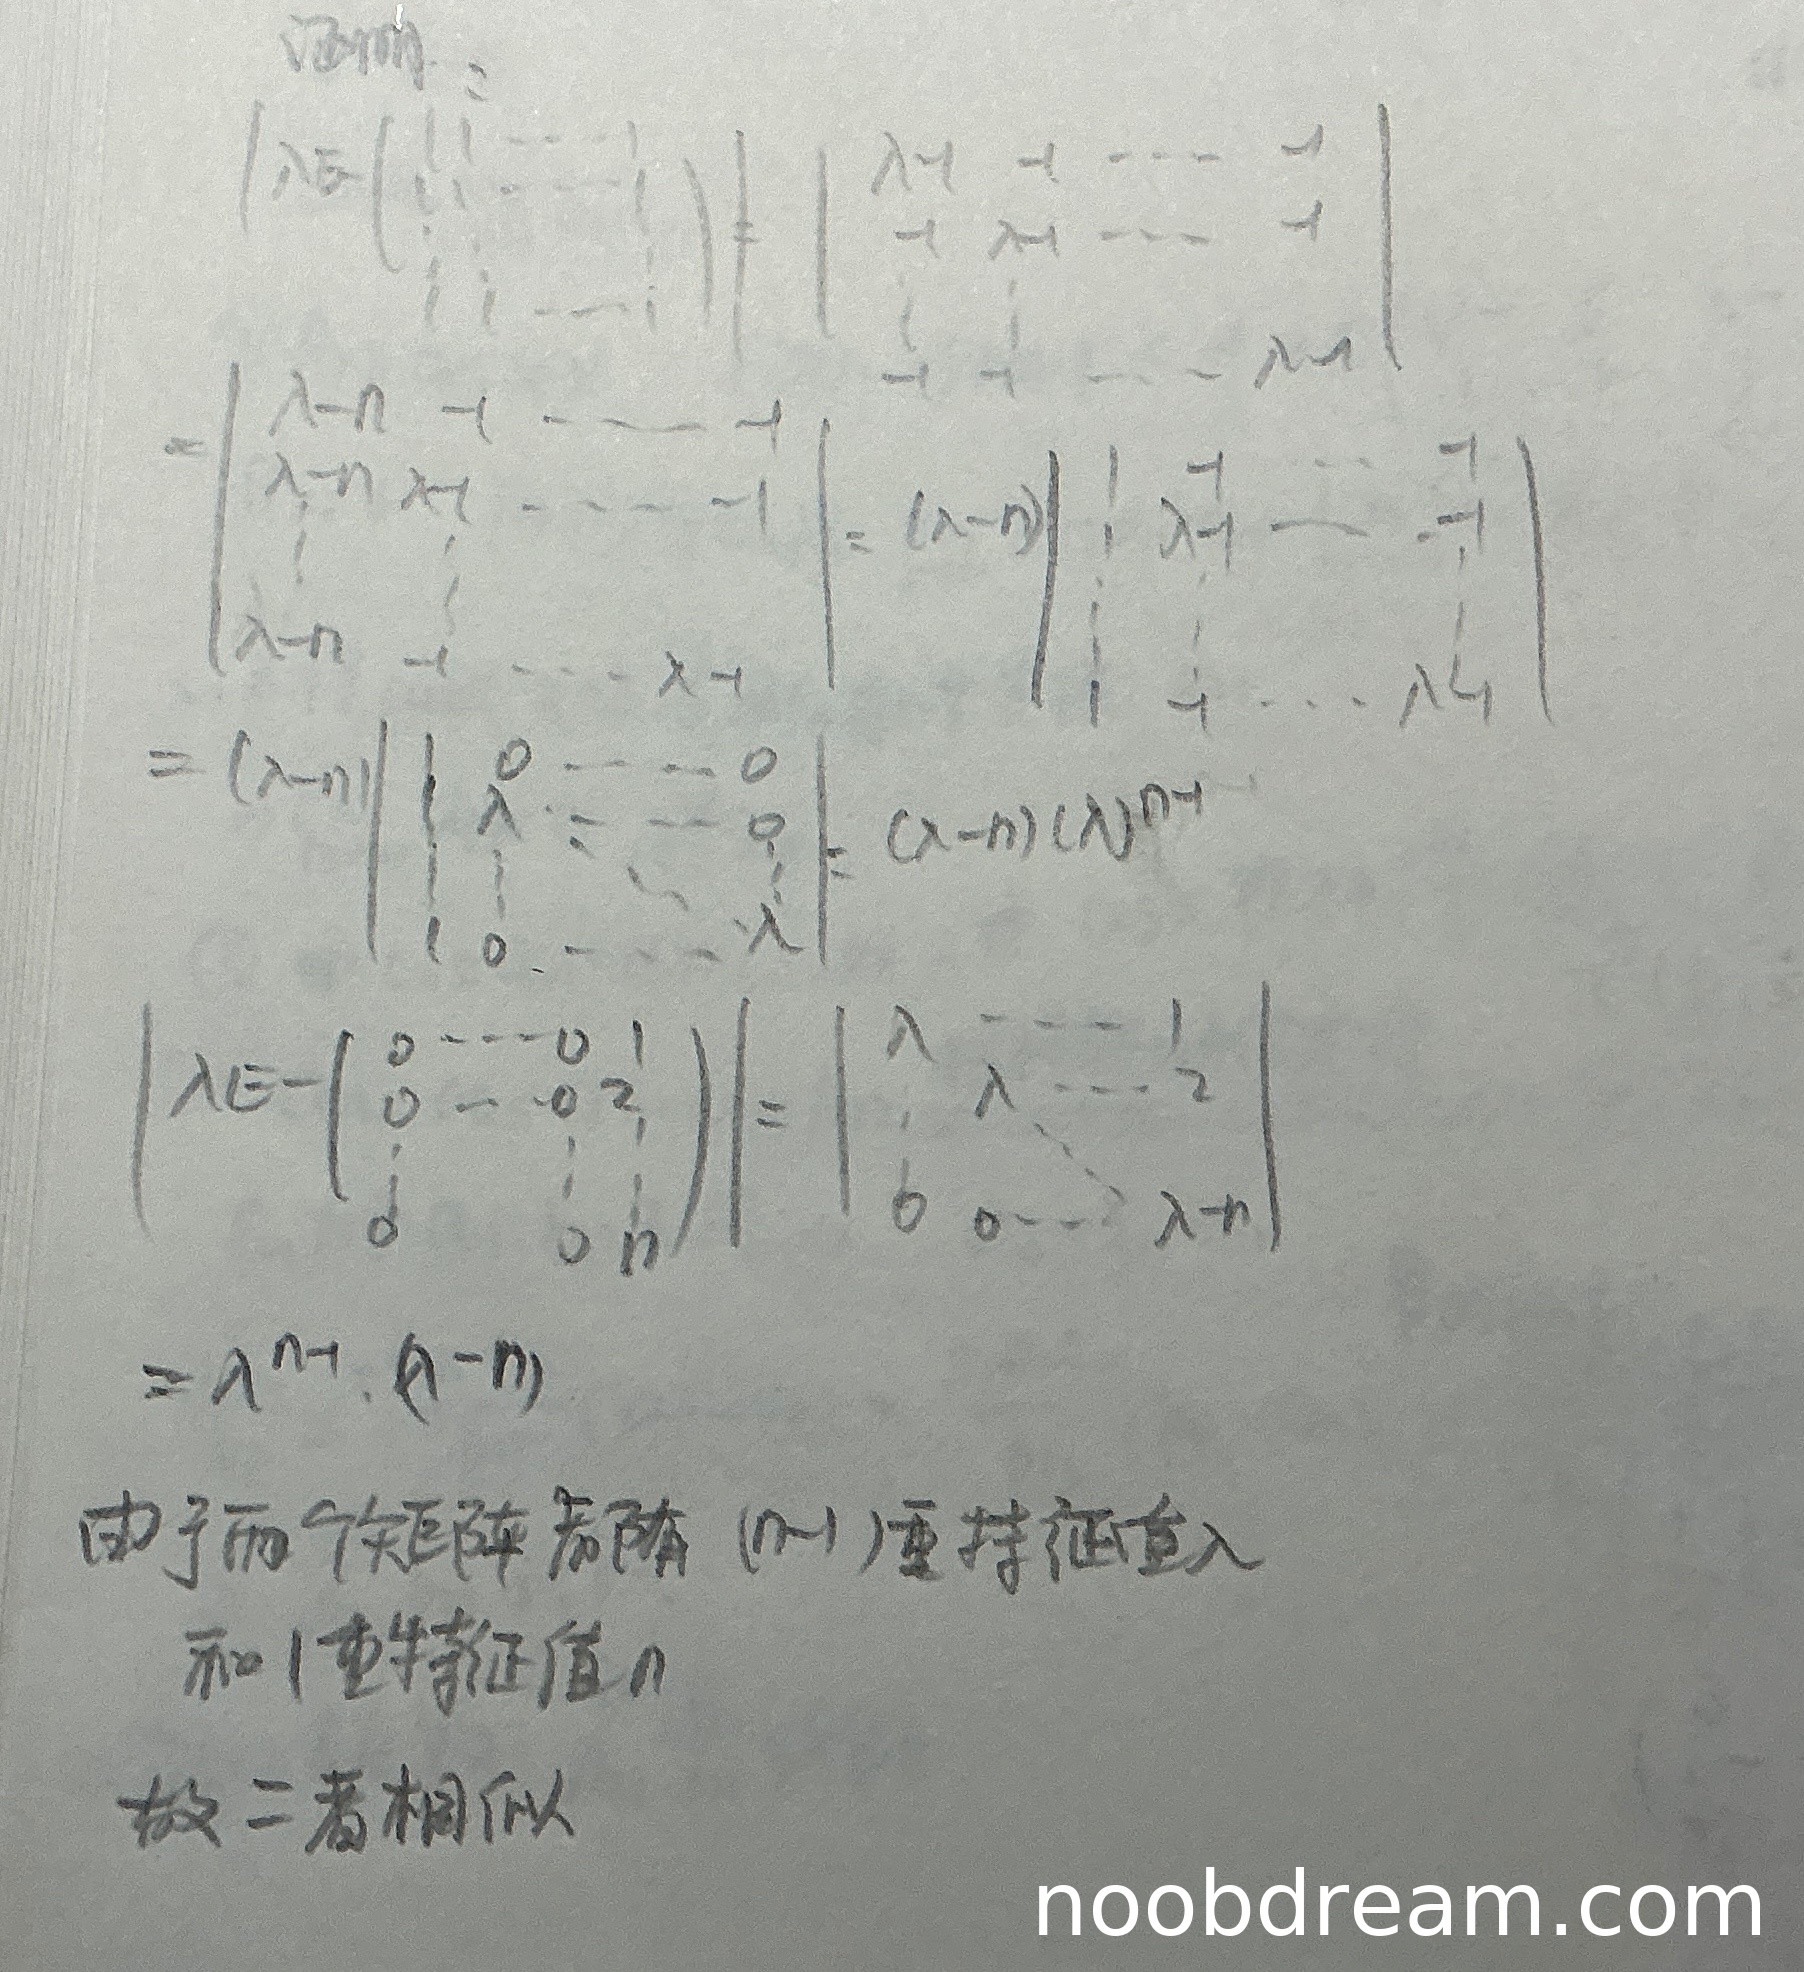 证明:
|λE-(1 1 ---- 1
1 1 ---- 1
1 1 ---- 1)| = |λ-1 -1 ---- -1
-1 λ-1 ---- -1
-1 -1 ---- λ-1|
= |λ-n -1 ---- -1
λ-n λ-1 ---- -1
λ-n -1 ---- λ-1| = (λ-n)|1 -1 ---- -1
1 λ-1 ---- -1
1 -1 ---- λ-1|
= (λ-n)|1 0 ---- 0
1 λ ---- 0
1 0 ---- λ| = (λ-n)(λ)^{n-1}
|λE-(0 ---- 0 1
0 ---- 0 2
0 0 n)| = |λ ---- 1
λ ---- 2
0 0 ---- λ-n|
= λ^{n-1}·(λ-n)
由于两个矩阵都有(n-1)重特征值λ
和1重特征值n
故二者相似
noobdream.com